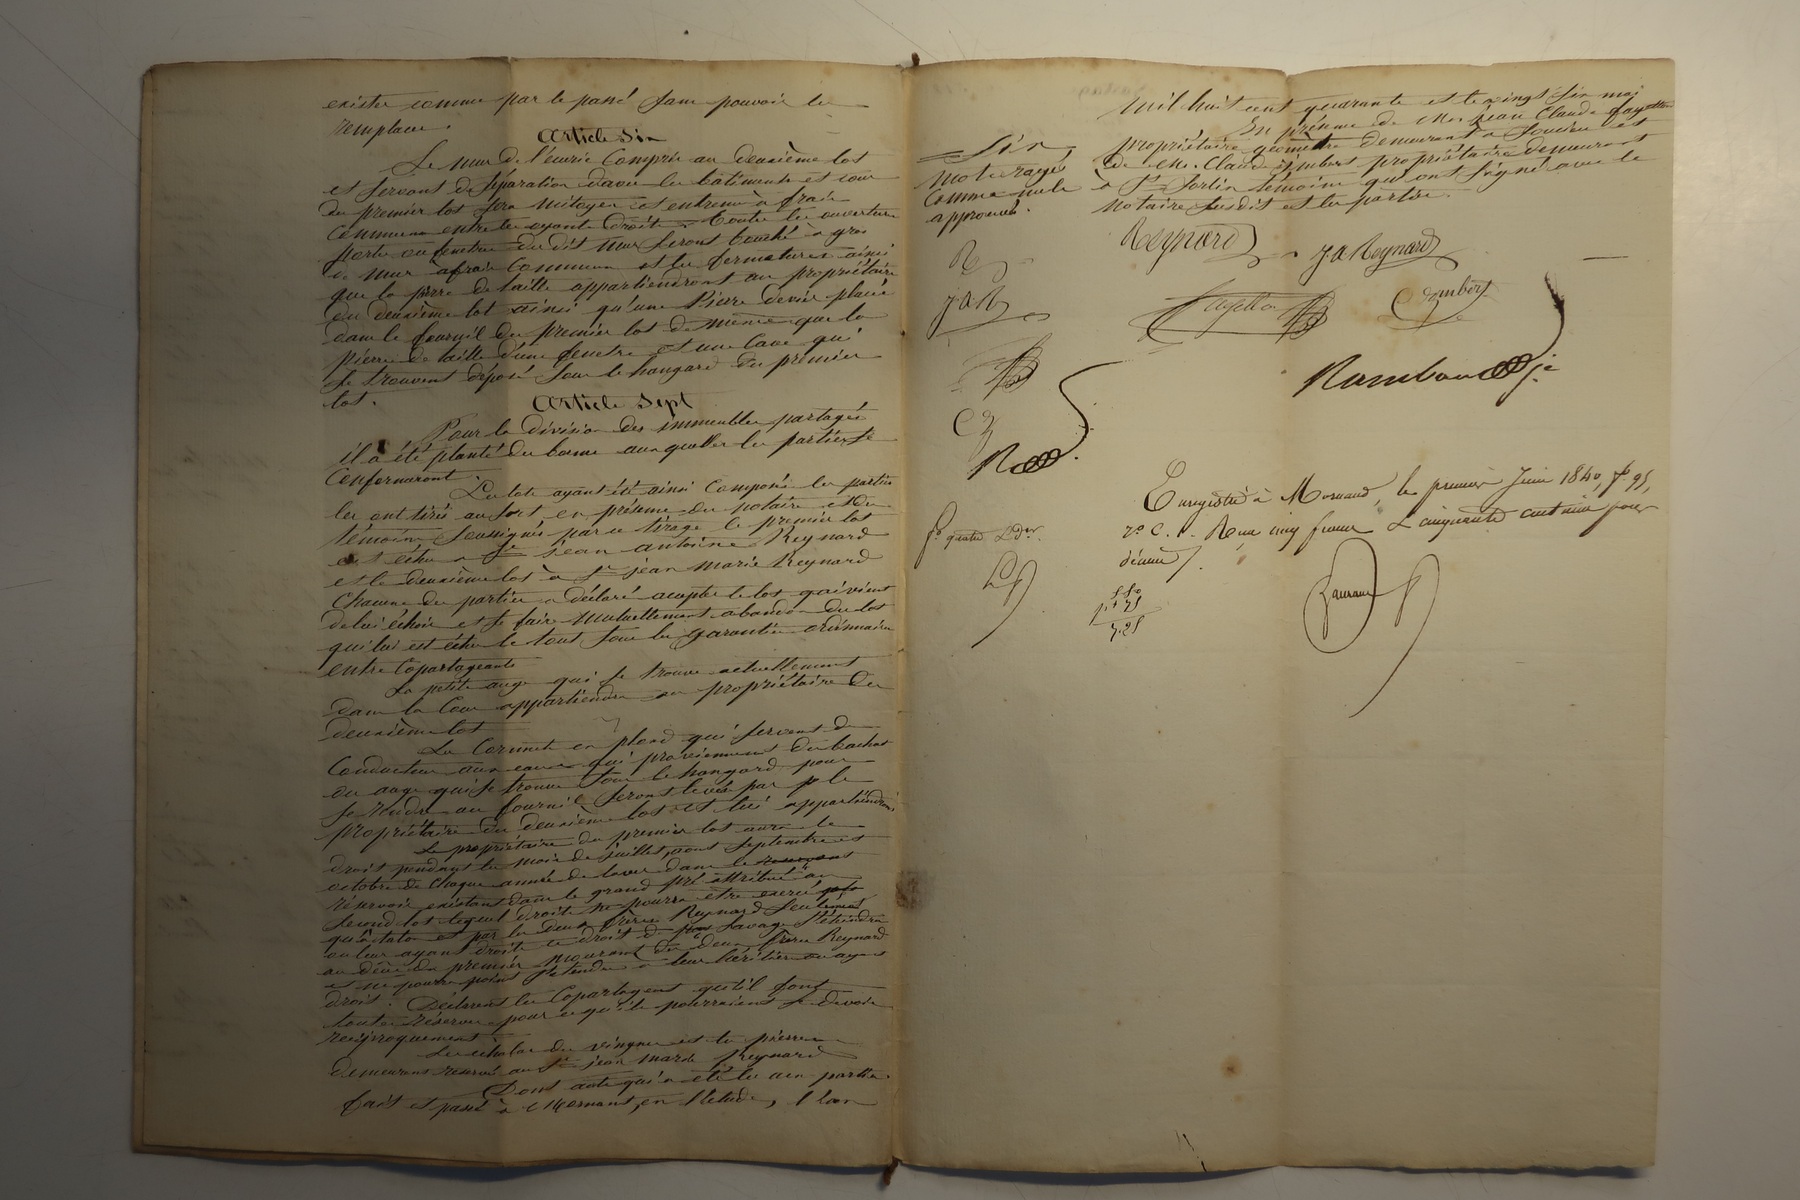 exister comme par le passé sans pouvoir le
remplacer.
Article Six
Le mur de l'écurie Compris au deuxième lot
et servant de séparation d'avec les batiments et cour
du premier lot sera mitoyen et entrenu à frais
communs entre les ayants droits. Toute les ouvertures
porte ou fenêtre du dit mur seront bouché à gros
de mur à frais Commun et les fermetures ainsi
que la pierre de taille appartiendront au propriétaire
du deuxième lot ainsi qu'une Pierre d'evier placé
dans le fournil du premier lot de même que la
Pierre de taille d'une fenetre et une Cave qui
se trouvent déposé sous le hangard du premier
lot.
Article Sept
Pour la division des immeubles partagés
il a été planté des borne auxquelles les parties se
Conformeront.
Les lots ayant été ainsi Composés les parties
les ont tirés au sort en présence du notaire et des
témoins soussignés par ce tirage le premier lot
est échu à Sr jean antoine Reynard
et le deuxième lot à Sr jean marie Reynard
Chacune des parties a déclaré accepter le lot qui vient
de lui échoir et se faire Mutuellement abandon du lot
qui lui est échu le tout sous les garanties ordinaires
entre Copartageants
La petite auge qui se trouve actuellement
dans la Cour appartiendra au propriétaire du
deuxième lot
Les Cornets en plomb qui servent de
Conducteur aux eaux qui proviennent du bachat
ou auge qui se trouve sous le hangard pour
se rendre au fournil seront levés par le
propriétaire du deuxième lot et lui appartiendront
Le propriétaire du premier lot aura le
droit pendant les mois de juillet, aout septembre et
octobre de Chaque année de laver dans le
réservoir existant dans le grand pré attribué au
second lot lequel droit ne pourra être exercé
qu'à et par les deux frères Reynard Seulement
ou leur ayant droits ce droit de lavage s'éteindra
au décès du premier mourant des deux frères Reynard
et ne pourra point s'étendre à leur héritier ou ayant
droit. Déclarent les Copartageant qu'il font
toutes réserves pour ce qu'ils pourraient se devoir
réciproquement.
Les échalas des vingnes et le pressoir
demeurent réservé au Sr jean marie Reynard
Dont acte qui a été lu aux parties
fait et passé à Mornant, en l'étude, l'an
mil huit cent quarante et le vingt six mai
En présence de Mrs jean Claude fayolle
propriétaire géomètre demeurant à Soucieu et
de Mr. Claude jombert propriétaire demeurant
à St Sorlin témoins qui ont signé avec le
notaire susdit et les parties.
Six
mots rayés
Comme nuls
approuvés.
Reynard
J A Reynard
R
J A R
fayolle
C Jombert
Rambaud je
C J
R
Enregistré à Mornant, le premier Juin 1840, fo 95,
vo C. 1. Reçu cinq francs & cinquante centimes pour
décime
5 50
1 75
7.25